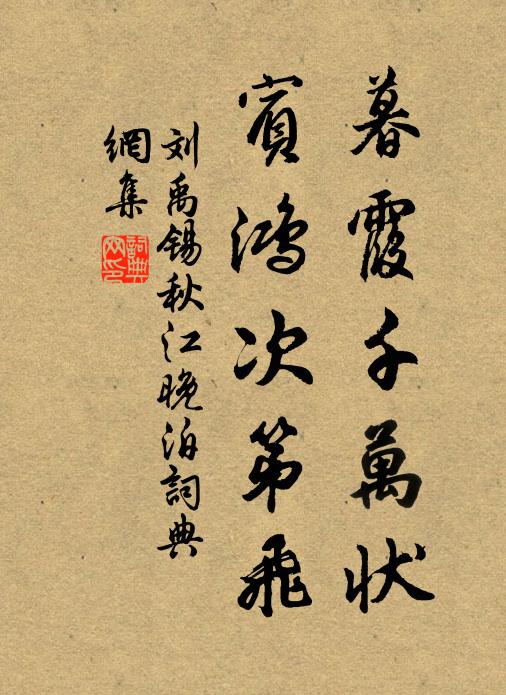 暮霞千萬状
賓鴻次第飛
刘禹锡秋江晚泊詞典
網集
詞典
网印